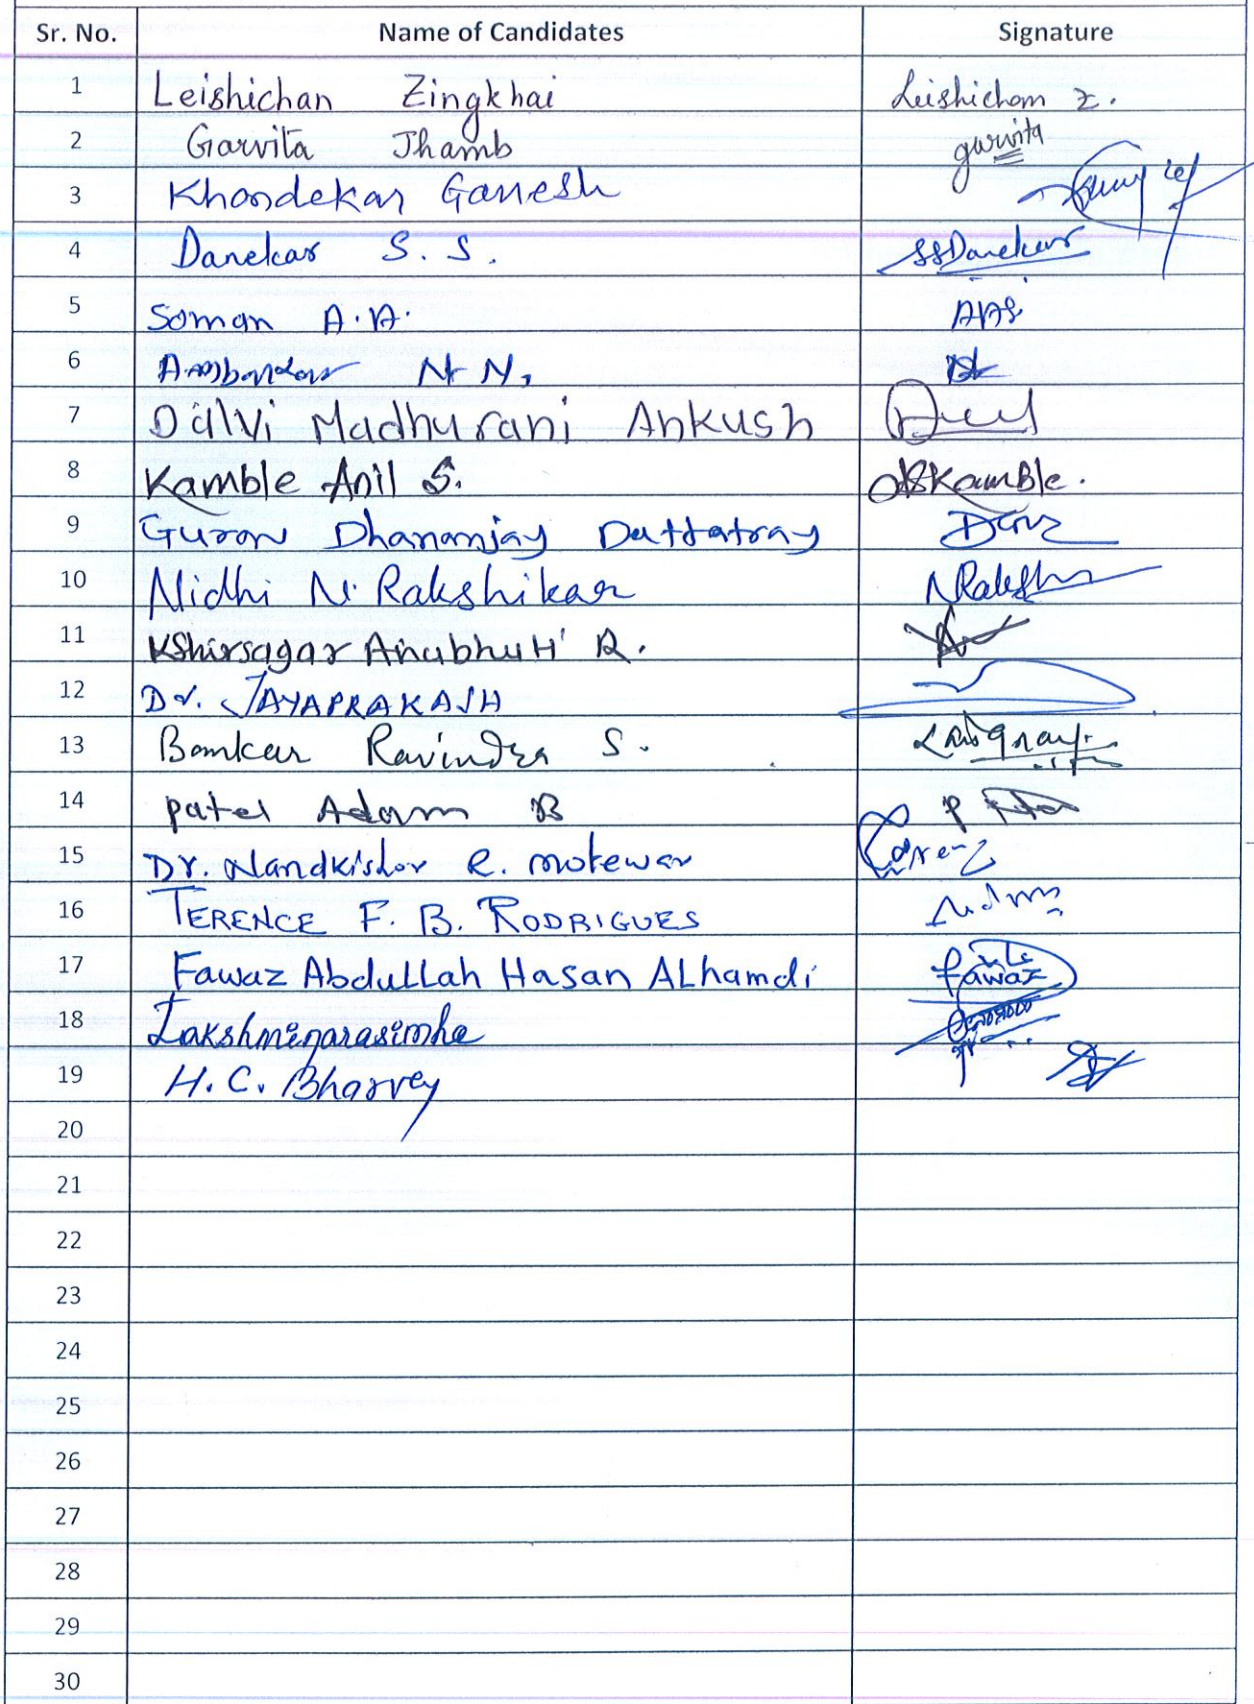 Sr. No. Name of Candidates Signature
1 Leishichan Zingkhai Leishichan Z.
2 Garvita Jhamb garvita
3 Khondekar Ganesh
4 Danekar S. S. SSDanekar
5 Soman A. A. AAS
6 N.
7 Dalvi Madhurani Ankush
8 Kamble Anil S. ASKamble.
9 Gurav Dhananjay Dattatray
10 Nidhi N. Rakshikar
11 Kshirsagar Anubhuti R.
12 Dr. JAYAPRAKASH
13 Bankar Ravindra S.
14 Patel Adam B P
15 Dr. Nandkishor R. Motewar
16 TERENCE F. B. RODRIGUES
17 Fawaz Abdullah Hasan ALhamdi fawaz
18 Lakshminarasimha
19 H. C. Bharvey
20
21
22
23
24
25
26
27
28
29
30